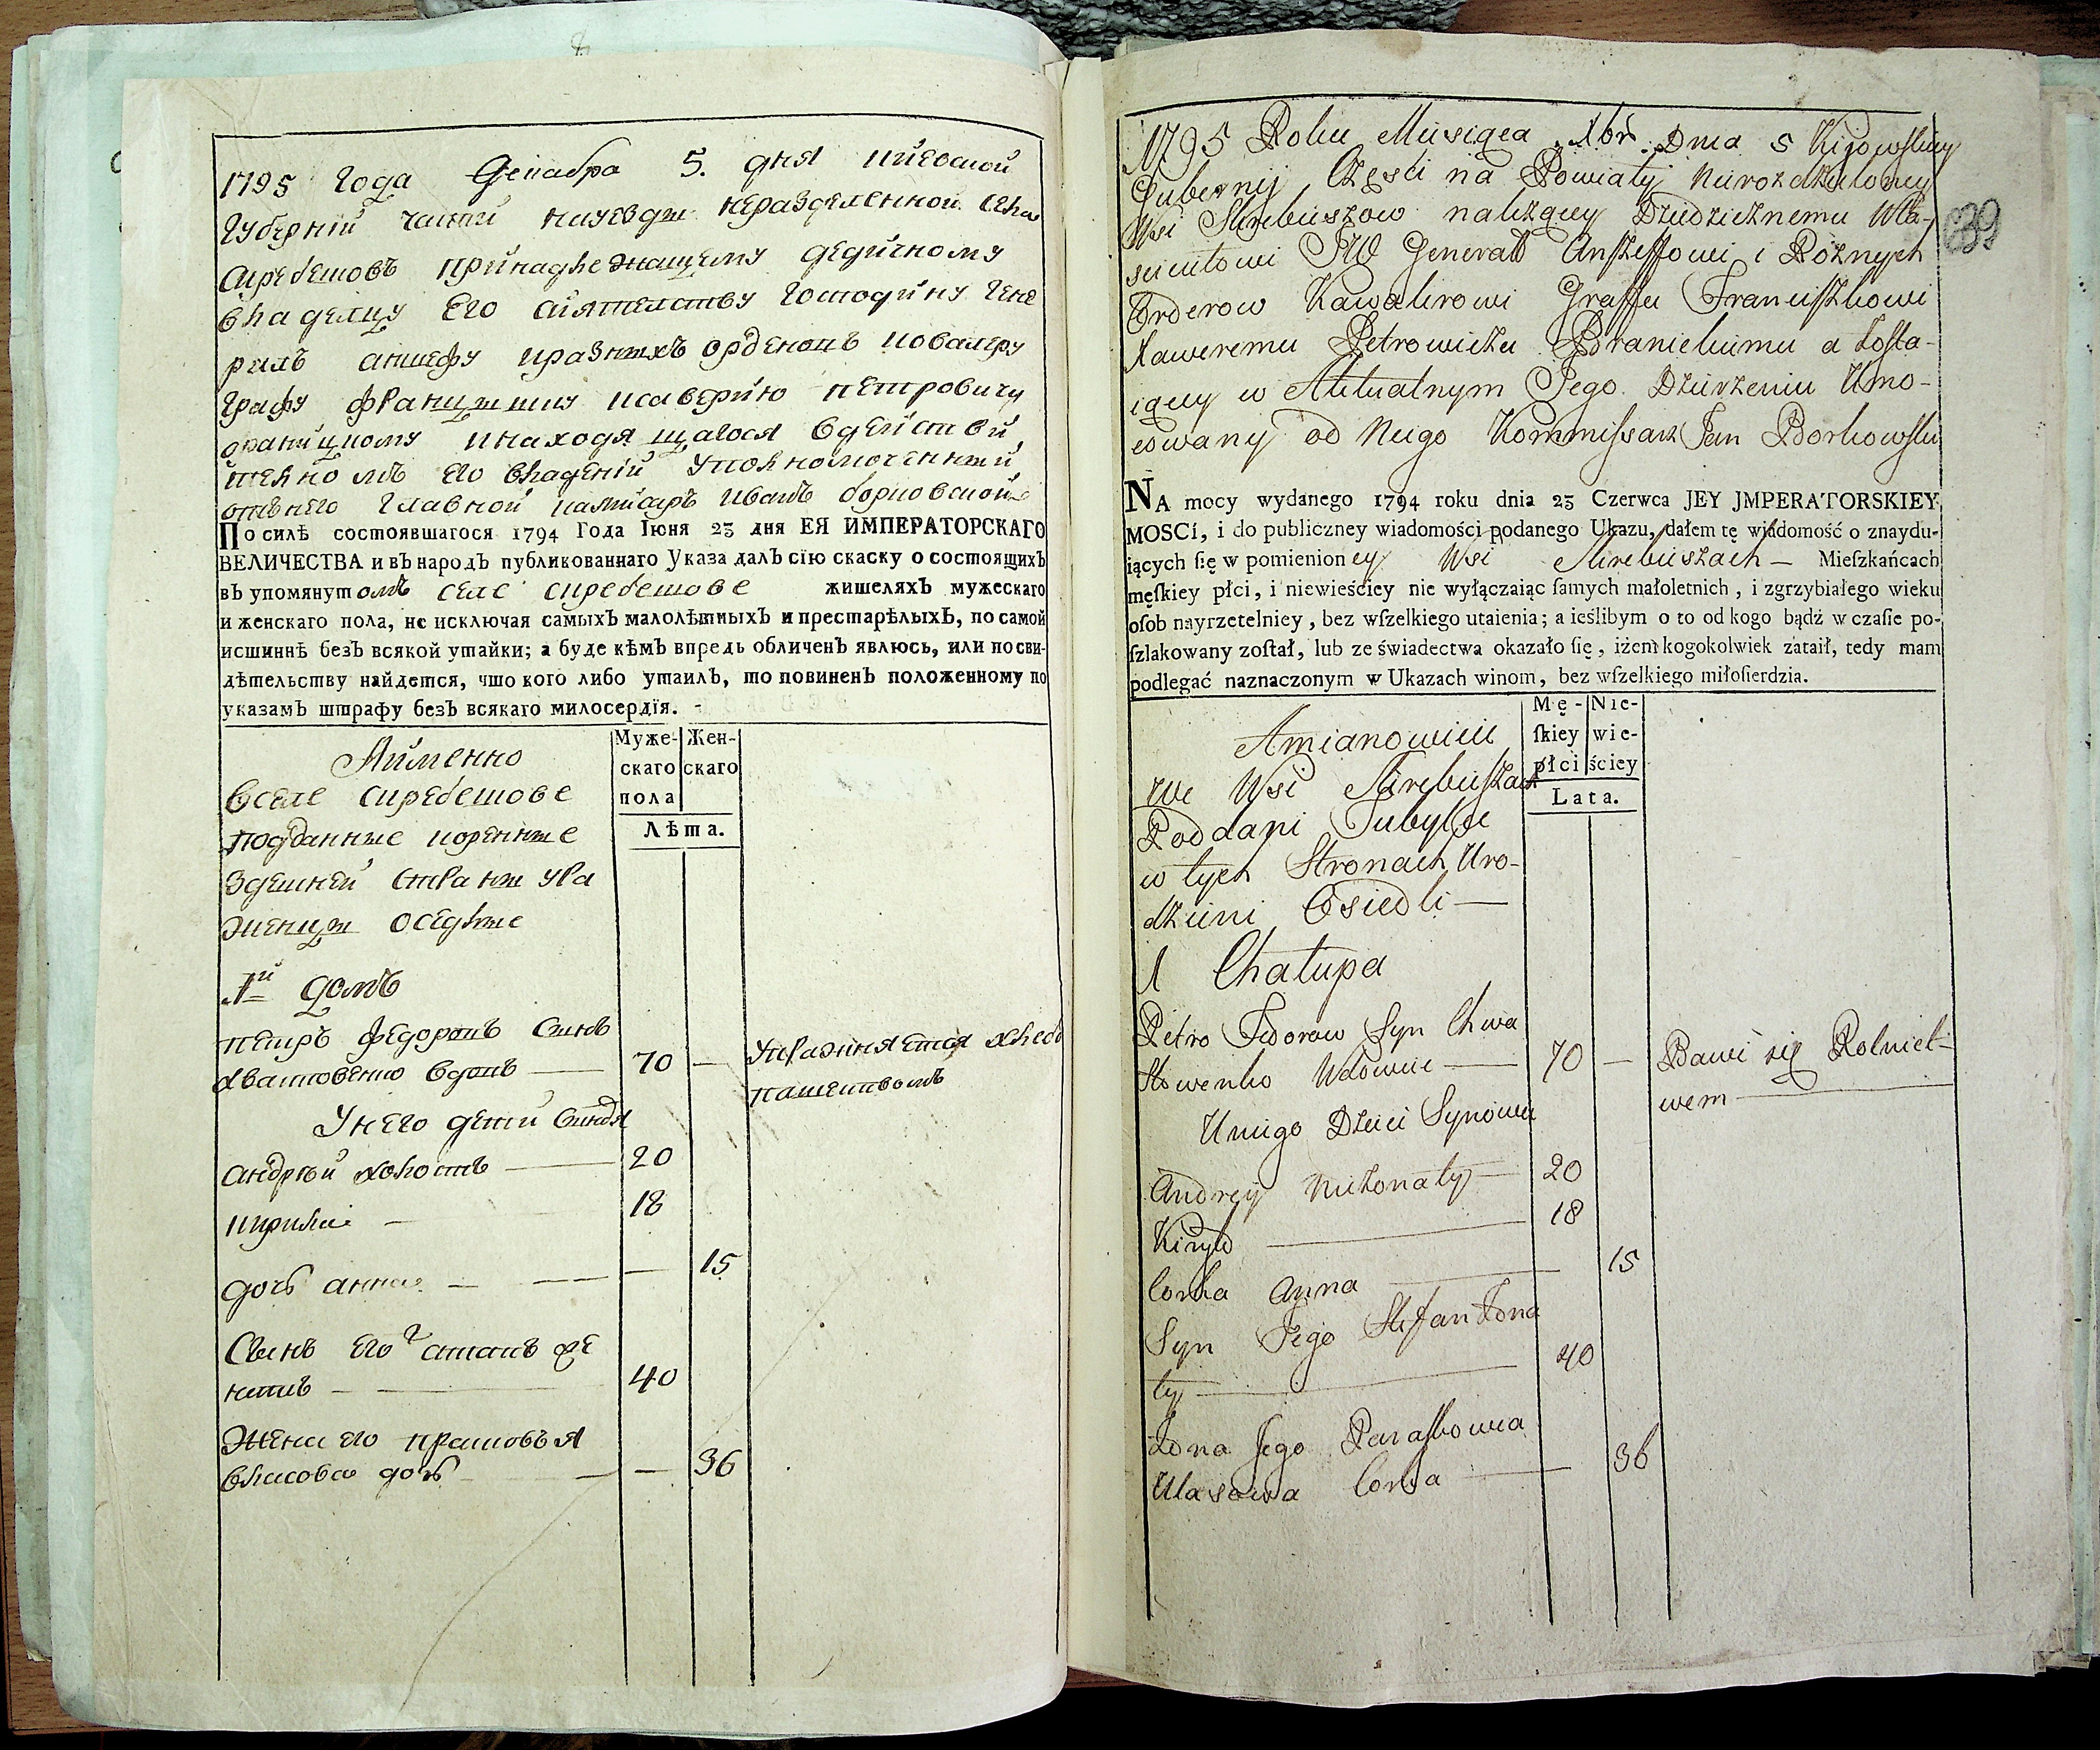 1795 Года Декабра 5. дня киевской
Губерній части науезди неразделенной села
скребешовъ принадлежащему дедичному
владелцу Его сіятелству Господину Гене
ралъ аншефу иразныхъ орденовъ кавалеру
Графу францышку ксаверйю петровичу
браницкому инаходящагося вдействи
телномъ его владеніи уполномоченный
отънего Главной камисаръ иванъ борковской
По силѣ состоявшагося 1794 Года Іюня 23 дня ЕЯ ИМПЕРАТОРСКАГО
ВЕЛИЧЕСТВА и въ народъ публикованнаго Указа далъ сїю скаску о состоящихъ
въ упомянутомъ селе скребешове жителяхъ мужескаго
и женскаго пола, не исключая самыхъ малолѣтныхъ и престарѣлыхъ, по самой
истиннѣ безъ всякой утайки; а буде кѣмъ впредь обличенъ явлюсь, или по сви-
дѣтельству найдется, что кого либо утаилъ, то повиненъ положенному по
указамъ штрафу безъ всякаго милосердїя. -
Муже- Жен-
скаго скаго
пола
Лѣта.
Аименно
вселе скребешове
подданные коренные
здешней страны ура
женцы оседлые
1й домъ
петръ федоровъ сынъ
хвастовенко вдовъ — 70 — упражняется хлебо
пашеством
У него дети сыновя
андрѣй холостъ — 20
кирила — 18
дочь анна — — 15
Сынъ его стапанъ же
натъ — 40
Жена его прасковья
власова дочь — — 36
1795 Roku Miesiąca Xbr. Dnia 5 Kijowskiey
Gubernij Części na Powiaty nierozdzieloney
Wsi Skrebiszow należący Dziedzicznemu Wła-
scicielowi JW Generałł Anszeffowi i Rożnych
Orderow Kawalerowi Graffu Franciszkowi
Xaweremu Petrowiczu Branickiemu a Zosta-
iącey w Aktualnym Jego Dzierżeniu Umo-
cowany od Niego Kommissarz Jan Borkowski
39
NA mocy wydanego 1794 roku dnia 23 Czerwca JEY JMPERATORSKIEY
MOSCi, i do publiczney wiadomości podanego Ukazu, dałem tę wiadomość o znaydu-
iących ſię w pomienioney Wsi Skrebiszach — Mieſzkańcach
męſkiey płci, i niewieściey nie wyłączaiąc ſamych małoletnich, i zgrzybiałego wieku
oſob nayrzetelniey, bez wſzelkiego utaienia; a ieślibym o to od kogo bądź w czaſie po-
ſzlakowany zoſtał, lub ze świadectwa okazało ſię, iżem kogokolwiek zataił, tedy mam
podlegać naznaczonym w Ukazach winom, bez wſzelkiego miłoſierdzia.
Mę- Nie-
ſkiey wie-
płci ściey
Lata.
Amianowicie
we Wsi Skrebiszach
Poddani Tubylcze
w tych Stronach Uro-
dzieni Osiedli —
1 Chałupa
Petro Fedorow Syn Chwa
stowenko Wdowiec — 70 — Bawi się Rolnict-
wem
U niego Dzieci Synowie
Andrey nieżonaty — 20
Kiryło — 18
Corka Anna — 15
Syn Jego Stefan Żona
ty — 40
Żona Jego Paraskowia
Ułasowa Corka — 36